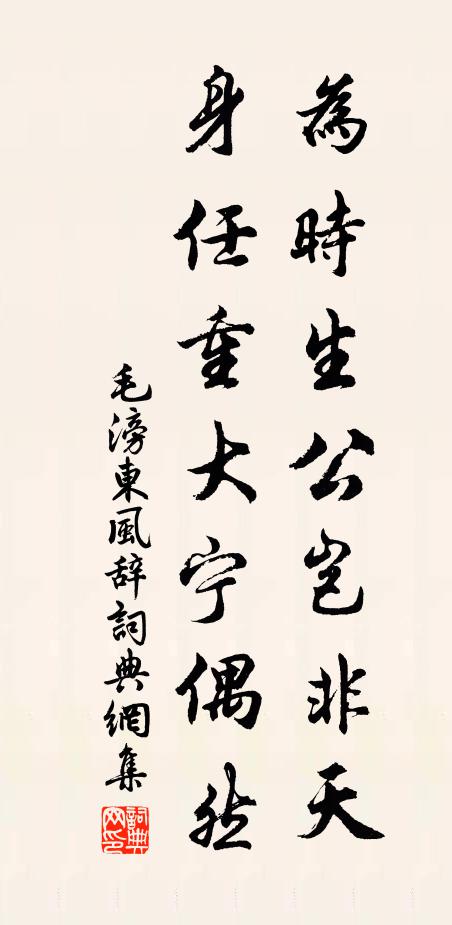 為時生公豈非天
身任重大宁偶然
毛滂東風辞詞典網集
詞典網印